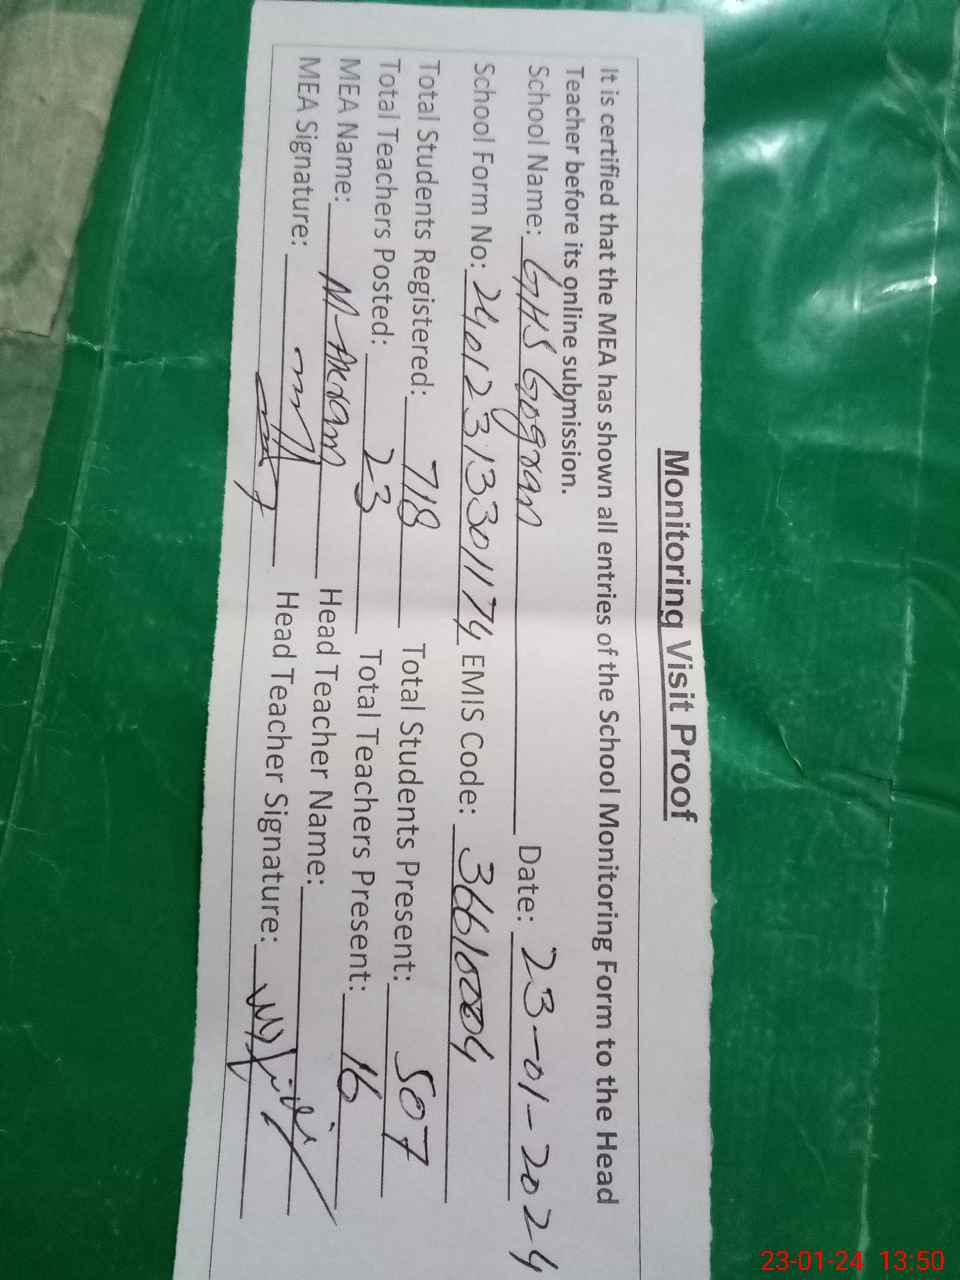 Monitoring Visit Proof
It is certified that the MEA has shown all entries of the School Monitoring Form to the Head
Teacher before its online submission.
School Name: GHS Gogran Date: 23-01-2024
School Form No: 24012313301174 EMIS Code: 36610004
Total Students Registered: 718 Total Students Present: 507
Total Teachers Posted: 23 Total Teachers Present: 16
MEA Name: M-Akram Head Teacher Name:
MEA Signature: Head Teacher Signature:
23-01-24 13:50